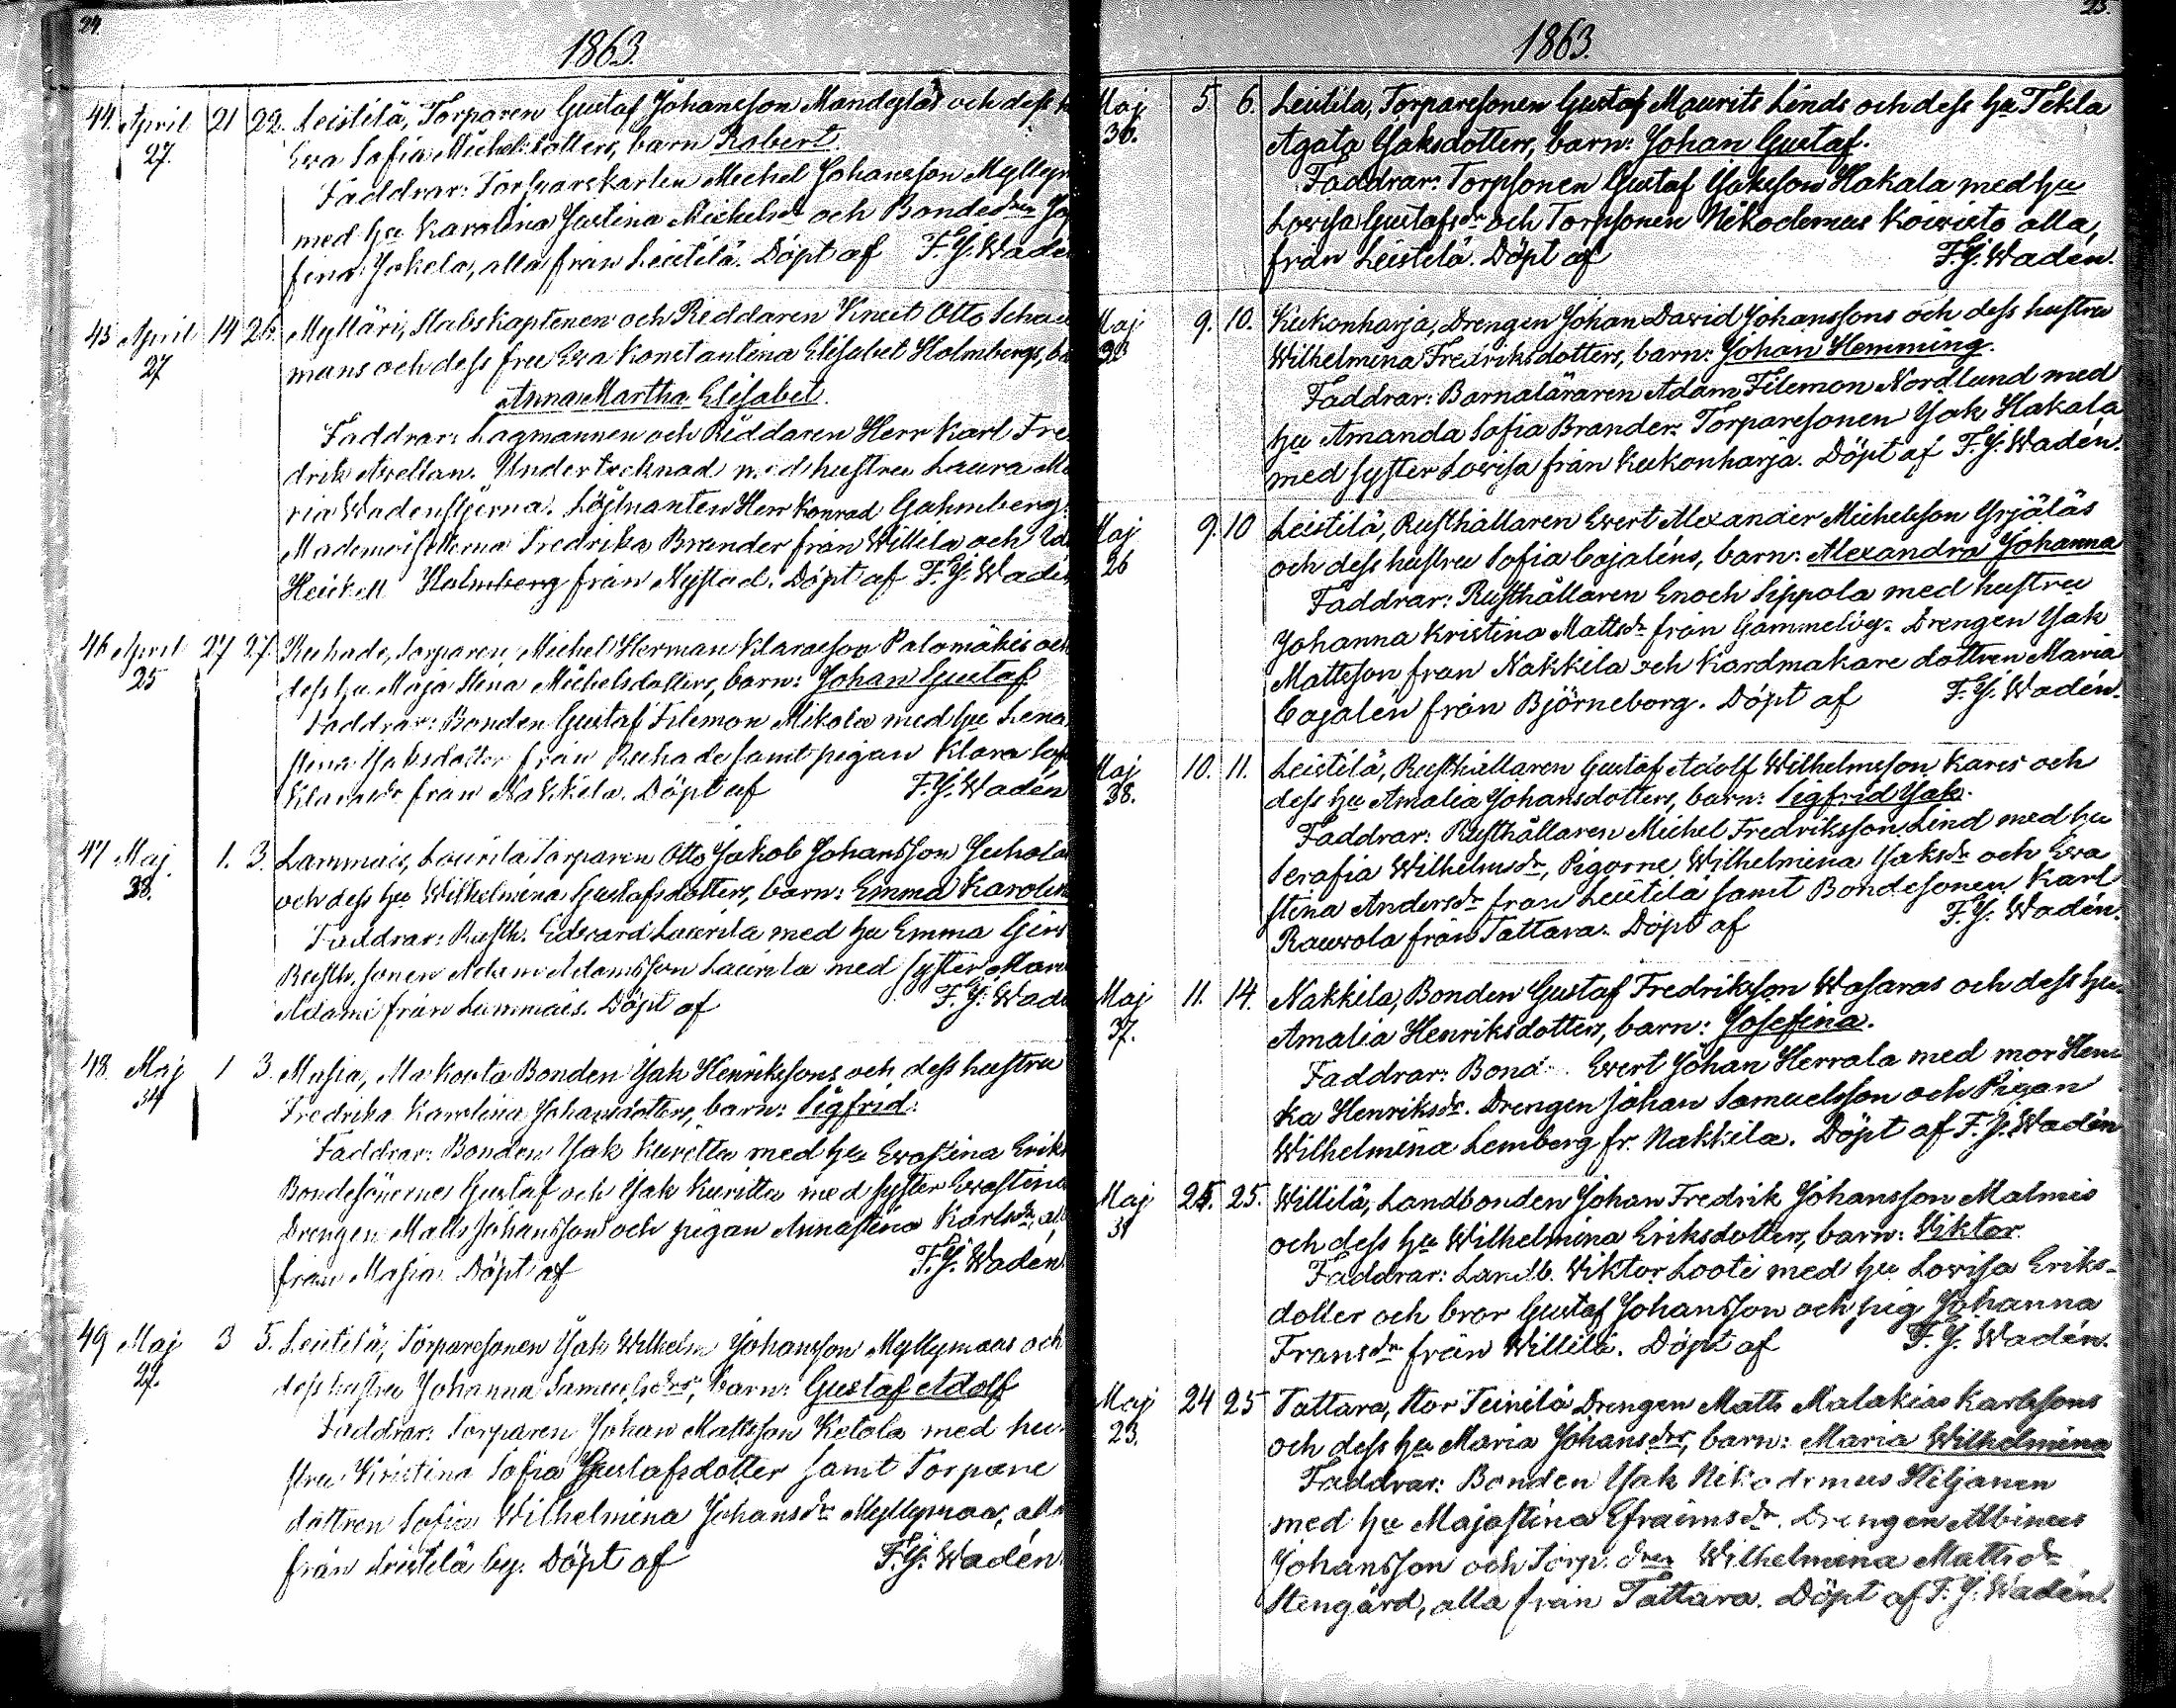 24.
1863.
44. April 21 22. Leistilä, Torparen Gustaf Johansson Mandeglas och dess
27. Ewa Sofia Michelsdotters, barn Robert.
Faddrar: Torparekarlen Michel Johansson
med hu Karolina Justina Michelsdr och Bondedren
fina Jokela, alla från Leistilä. Döpt af F. J. Wadén
45 April 14 26. Mylläri, Stabskaptenen och Riddaren Knut Otto
27 mans och dess fru Ewa Konstantina Elisabet Holmbergs,
Anna Martha Elisabet.
Faddrar: Lagmannen och Riddaren Herr Karl Fre
drik Avellan. Undertecknad med hustru Laura Ma
ria Wadenstjerna. Löjtnanten Herr Konrad Gahmberg.
Mademoisellerna Fredrika Brander från Willila och
Heickell Holmberg från Nystad. Döpt af F. J. Wadén
46 April 27 27. Ruhade, Torparen, Michel Herman Klarasson Palomäkis och
25 dess hu Maja Stena Michelsdotters, barn: Johan Gustaf
Faddrar: Bonden Gustaf Filemon Mikola med hu Lena
stina Jaksdotter från Ruhade samt pigan Klara
från Nakkila. Döpt af F. J. Wadén
47 Maj 1. 3. Lammais, Laurila, Torparen Otto Jakob Johansson Juhola
33. och dess hu Wilhelmina Gustafsdotters, barn: Emma Karolin
Faddrar: Rusth. Edvard Laurila med hu Emma
Rusth. sonen Adam Adamsson Laurila med syster
Adami från Lammais. Döpt af F. J. Wadé
48. Maj 1 3. Masia, Markoota Bonden Jak Henrikssons och dess hustru
34 Fredrika Karolina Johansdotters, barn: Sigfrid.
Faddrar: Bonden Jak Kuritta med hu Ewastina Eriks
Bondesönerne Gustaf och Jak Kuritta med syster Ewastina
Drengen Matts Johansson och pigan Annastina Karlsdr,
från Masia. Döpt af F. J. Wadén
49 Maj 3 5. Leistilä, Torparesonen Jak Wilhelm Johansson Myllymaas och
27. dess hustru Johanna Samuelsdrs, barn: Gustaf Adolf
Faddrar: Torparen Johan Mattsson Ketola med hu-
stru Kristina Sofia Gustafsdotter samt Torpare
dottren Sofia Wilhelmina Johansdr Myllymaa, alla
från Leistilä by. Döpt af F. J. Wadén.
25.
1863.
Maj 5 6. Leistilä, Torparesonen Gustaf Maurits Linds och dess hu Tekla
36. Agata Jaksdotters, barn: Johan Gustaf.
Faddrar: Torpsonen Gustaf Jaksson Hakala med hu
Lovisa Gustafsdr och Torpsonen Nikodemus Koivisto alla,
från Leistilä. Döpt af F. J. Wadén.
Maj 9. 10. Kukonharja, Drengen Johan David Johanssons och dess hustru
Wilhelmina Fredriksdotters, barn: Johan Hemming.
Faddrar: Barnaläraren Adam Filemon Nordlund med
hu Amanda Sofia Brander. Torparesonen Jak Hakala
med syster Lovisa från Kukonharja. Döpt af F. J. Wadén.
Maj 9. 10 Leistilä, Rusthållaren Evert Alexander Michelsson Yrjäläs
26 och dess hustru Sofia Cajaléns, barn: Alexandra Johanna
Faddrar: Rusthållaren Enoch Sippola med hustru
Johanna Kristina Mattsdr från Gammelby. Drengen Jak
Mattsson från Nakkila och Kardmakare dottren Maria
Cajalén från Björneborg. Döpt af F. J. Wadén.
Maj 10. 11. Leistilä, Rusthållaren Gustaf Adolf Wilhelmsson Kares och
38. dess hu Amalia Johansdotters, barn: Segfrid Jak.
Faddrar: Rusthållaren Michel Fredriksson Lind med hu
Serafia Wilhelmsdr, Pigorne Wilhelmina Jaksdr och Ewa
stina Andersdr från Leistilä samt Bondesonen Karl
Rauvola från Tattara. Döpt af F. J. Wadén.
Maj 11. 14. Nakkila, Bonden Gustaf Fredriksson Wasaras och dess hu
37. Amalia Henriksdotters, barn: Josefina.
Faddrar: Bond. Evert Johan Herrala med mor Henri
ka Henriksdr. Drengen Johan Samuelsson och Pigan
Wilhelmina Lemberg fr. Nakkila. Döpt af F. J. Wadén
Maj 25. 25. Willilä, Landbonden Johan Fredrik Johansson Malmis
31 och dess hu Wilhelmina Eriksdotters, barn: Viktor.
Faddrar: Landb. Viktor Looti med hu Lovisa Eriks-
dotter och bror Gustaf Johansson och pig Johanna
Fransdr från Willilä. Döpt af F. J. Wadén.
Maj 24 25 Tattara, Stor Teinilä Drengen Matts Malakias Karlssons
23. och dess hu Maria Johansdrs, barn: Maria Wilhelmina
Faddrar: Bonden Jak Nikodemus Hiljanen
med hu Majastina Efraimsdr. Drengen Albinus
Johansson och Torp. dren Wilhelmina Mattsdr
Stengård, alla från Tattara. Döpt af F. J. Wadén.